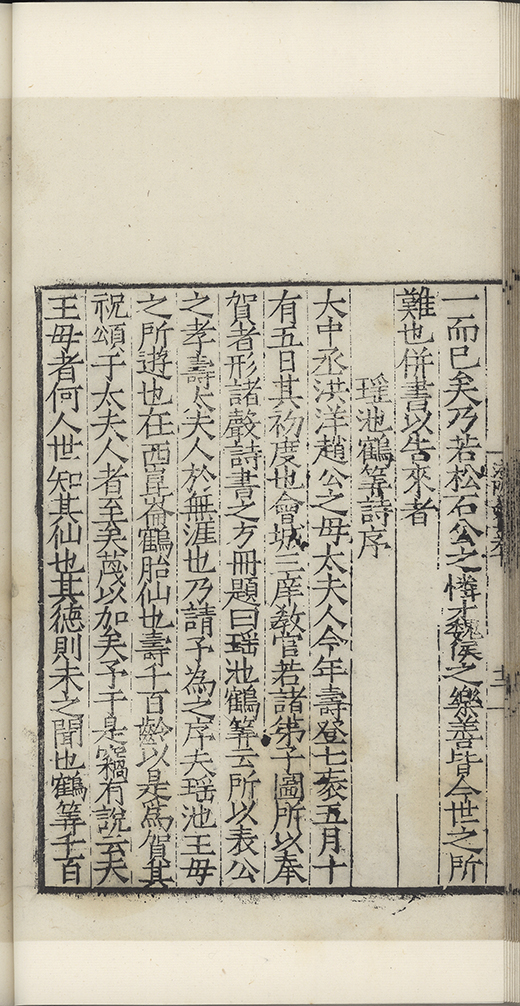 一而已矣乃若松石公之憐才魏侯之樂善皆今世之所
難也併書以告來者
瑶池鶴筭詩序
大中丞洪洋趙公之母太夫人今年壽登七袠五月十
有五日其初度也會城三庠教官若諸弟子圖所以奉
賀者形諸聲詩書之方冊題曰瑶池鶴筭云所以表公
之孝壽太夫人於無涯也乃請予為之序夫瑶池王母
之所遊也在西崑崙鶴胎仙也壽千百齡以是爲賀其
祝頌于太夫人者至矣蔑以加矣予于是竊有說云夫
王母者何人世知其仙也其德則未之聞也鶴筭千百